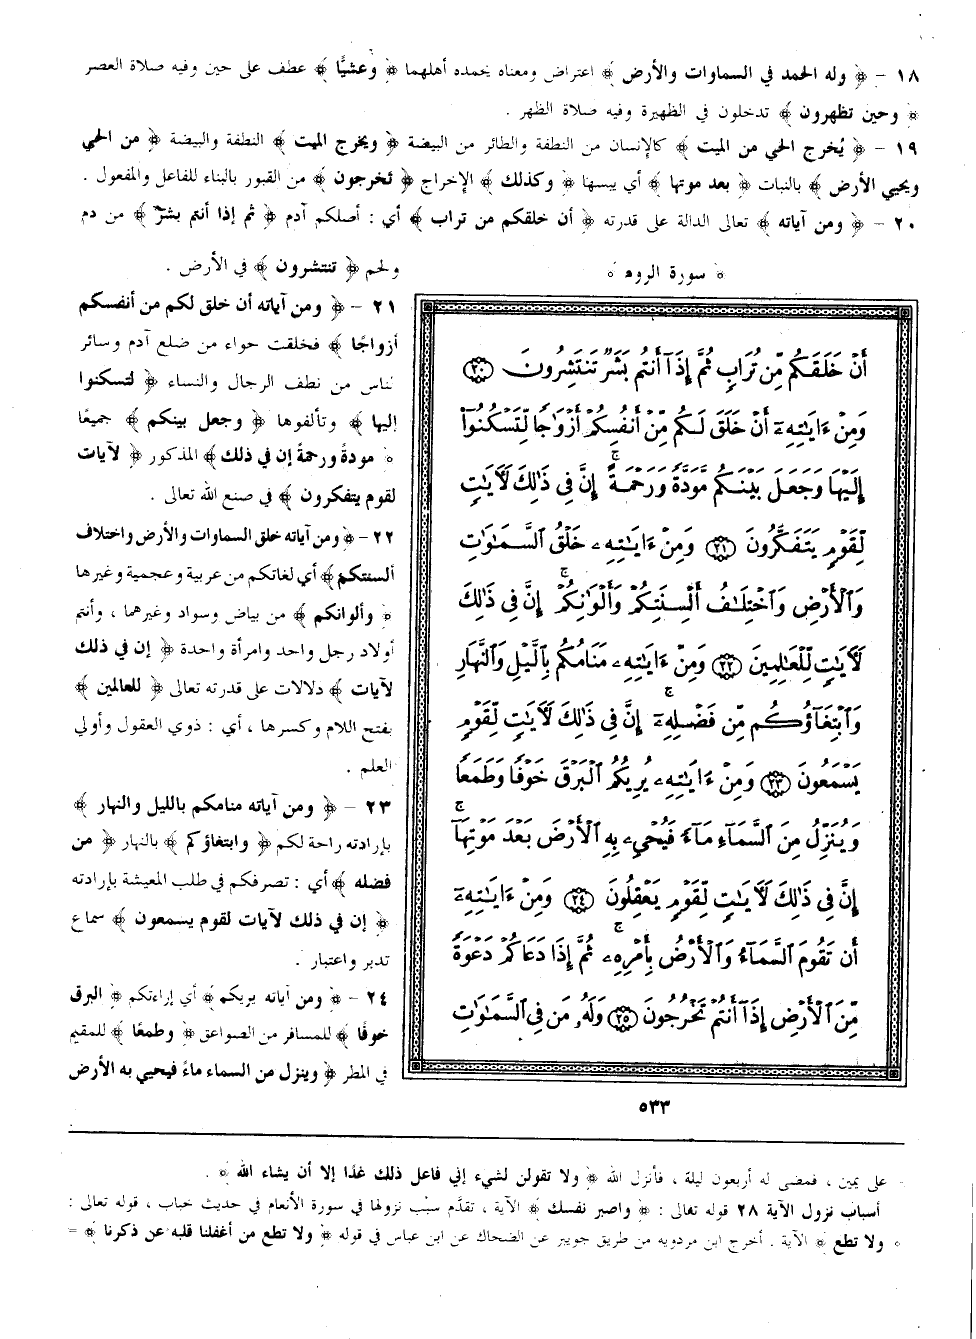 ١٨ - ﴿ وله الحمد في السماوات والأرض ﴾ اعتراض ومعناه يحمده أهلهما ﴿ وعشيًّا ﴾ عطف على حين وفيه صلاة العصر
﴿ وحين تظهرون ﴾ تدخلون في الظهيرة وفيه صلاة الظهر .
١٩ - ﴿ يُخرج الحي من الميت ﴾ كالإنسان من النطفة والطائر من البيضة ﴿ ويخرج الميت ﴾ النطفة والبيضة ﴿ من الحي
ويحيي الأرض ﴾ بالنبات ﴿ بعد موتها ﴾ أي يبسها ﴿ وكذلك ﴾ الإخراج ﴿ تُخرجون ﴾ من القبور بالبناء للفاعل والمفعول .
٢٠ - ﴿ ومن آياته ﴾ تعالى الدالة على قدرته ﴿ أن خلقكم من تراب ﴾ أي : أصلكم آدم ﴿ ثم إذا أنتم بشرٌ ﴾ من دم
ولحم ﴿ تنتشرون ﴾ في الأرض .
٢١ - ﴿ ومن آياته أن خلق لكم من أنفسكم
أزواجًا ﴾ فخلقت حواء من ضلع آدم وسائر
لناس من نطف الرجال والنساء ﴿ لتسكنوا
إليها ﴾ وتألفوها ﴿ وجعل بينكم ﴾ جميعًا
﴿ مودةً ورحمةً إن في ذلك ﴾ المذكور ﴿ لآيات
لقوم يتفكرون ﴾ في صنع الله تعالى .
٢٢ - ﴿ ومن آياته خلق السماوات والأرض واختلاف
ألسنتكم ﴾ أي لغاتكم من عربية وعجمية وغيرها
﴿ وألوانكم ﴾ من بياض وسواد وغيرهما ، وأنتم
أولاد رجل واحد وامرأة واحدة ﴿ إن في ذلك
لآيات ﴾ دلالات على قدرته تعالى ﴿ للعالمين ﴾
بفتح اللام وكسرها ، أي : ذوي العقول وأولي
العلم .
٢٣ - ﴿ ومن آياته منامكم بالليل والنهار ﴾
بإرادته راحة لكم ﴿ وابتغاؤكم ﴾ بالنهار ﴿ من
فضله ﴾ أي : تصرفكم في طلب المعيشة بإرادته
﴿ إن في ذلك لآيات لقوم يسمعون ﴾ سماع
تدبر واعتبار .
٢٤ - ﴿ ومن آياته يريكم ﴾ أي إراءتكم ﴿ البرق
خوفًا ﴾ للمسافر من الصواعق ﴿ وطمعًا ﴾ للمقيم
في المطر ﴿ وينزل من السماء ماءً فيحيي به الأرض
﴿ سورة الروم ﴾
أَنْ خَلَقَكُم مِّن تُرَابٍ ثُمَّ إِذَآ أَنتُم بَشَرٌ تَنتَشِرُونَ ۝٢٠
وَمِنْ ءَايَٰتِهِۦٓ أَنْ خَلَقَ لَكُم مِّنْ أَنفُسِكُمْ أَزْوَٰجًا لِّتَسْكُنُوٓا۟
إِلَيْهَا وَجَعَلَ بَيْنَكُم مَّوَدَّةً وَرَحْمَةً ۚ إِنَّ فِى ذَٰلِكَ لَـَٔايَٰتٍ
لِّقَوْمٍ يَتَفَكَّرُونَ ۝٢١ وَمِنْ ءَايَٰتِهِۦ خَلْقُ ٱلسَّمَٰوَٰتِ
وَٱلْأَرْضِ وَٱخْتِلَٰفُ أَلْسِنَتِكُمْ وَأَلْوَٰنِكُمْ ۚ إِنَّ فِى ذَٰلِكَ
لَـَٔايَٰتٍ لِّلْعَٰلِمِينَ ۝٢٢ وَمِنْ ءَايَٰتِهِۦ مَنَامُكُم بِٱلَّيْلِ وَٱلنَّهَارِ
وَٱبْتِغَآؤُكُم مِّن فَضْلِهِۦٓ ۚ إِنَّ فِى ذَٰلِكَ لَـَٔايَٰتٍ لِّقَوْمٍ
يَسْمَعُونَ ۝٢٣ وَمِنْ ءَايَٰتِهِۦ يُرِيكُمُ ٱلْبَرْقَ خَوْفًا وَطَمَعًا
وَيُنَزِّلُ مِنَ ٱلسَّمَآءِ مَآءً فَيُحْىِۦ بِهِ ٱلْأَرْضَ بَعْدَ مَوْتِهَآ ۚ
إِنَّ فِى ذَٰلِكَ لَـَٔايَٰتٍ لِّقَوْمٍ يَعْقِلُونَ ۝٢٤ وَمِنْ ءَايَٰتِهِۦٓ
أَن تَقُومَ ٱلسَّمَآءُ وَٱلْأَرْضُ بِأَمْرِهِۦ ۚ ثُمَّ إِذَا دَعَاكُمْ دَعْوَةً
مِّنَ ٱلْأَرْضِ إِذَآ أَنتُمْ تَخْرُجُونَ ۝٢٥ وَلَهُۥ مَن فِى ٱلسَّمَٰوَٰتِ
٥٣٣
على يمين ، فمضى له أربعون ليلة ، فأنزل الله ﴿ ولا تقولن لشيء إني فاعل ذلك غدًا إلا أن يشاء الله ﴾ .
أسباب نزول الآية ٢٨ قوله تعالى : ﴿ واصبر نفسك ﴾ الآية ، تقدَّم سبب نزولها في سورة الأنعام في حديث خباب ، قوله تعالى :
﴿ ولا تطع ﴾ الآية . أخرج ابن مردويه من طريق جويبر عن الضحاك عن ابن عباس في قوله ﴿ ولا تطع من أغفلنا قلبه عن ذكرنا ﴾ =